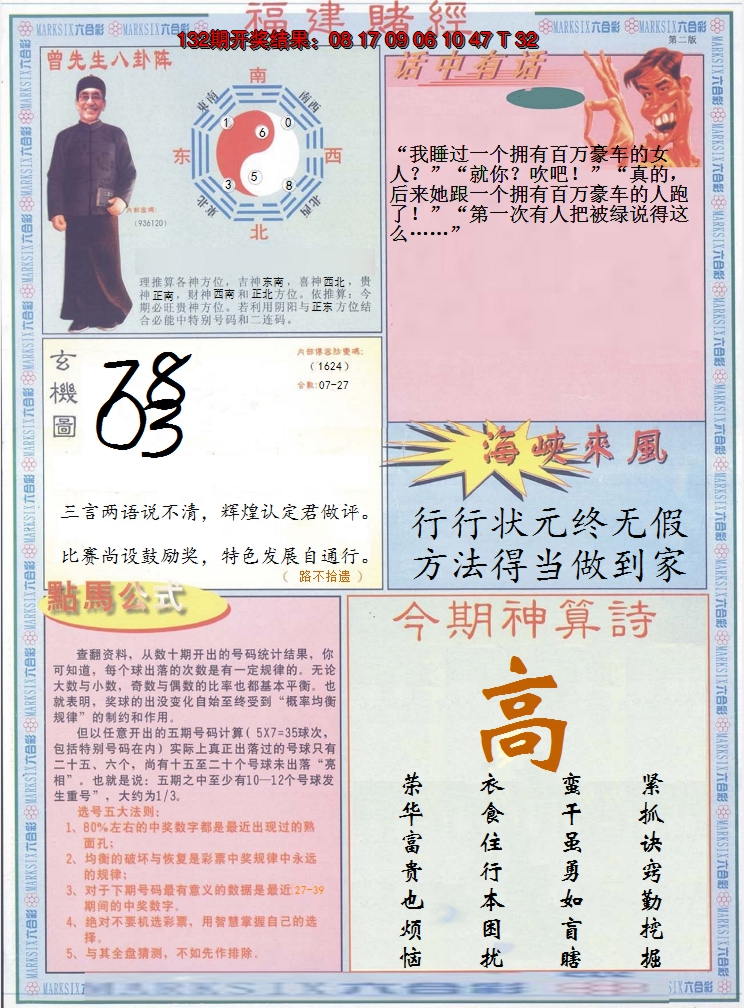 福建賭經
132期开奖结果：08 17 09 06 10 47 T 32
第二版
MARKSIX六合彩
曾先生八卦阵
南
东南
南西
1
6
0
东
西
3
5
8
東北
北西
北
内部密碼:
(936120)
理推算各神方位，吉神东南，喜神西北，贵
神正南，财神西南和正北方位。依推算：今
期必旺贵神方位。若利用阴阳与正东方位结
合必能中特别号码和二连码。
话中有话
“我睡过一个拥有百万豪车的女
人？”“就你？吹吧！”“真的，
后来她跟一个拥有百万豪车的人跑
了！”“第一次有人把被绿说得这
么……”
玄機圖
(1624)
合数:07-27
三言两语说不清，辉煌认定君做评。
比赛尚设鼓励奖，特色发展自通行。
（ 路不拾遗 ）
海峽來風
行行状元终无假
方法得当做到家
點馬公式
查翻资料，从数十期开出的号码统计结果，你
可知道，每个球出落的次数是有一定规律的。无论
大数与小数，奇数与偶数的比率也都基本平衡。也
就表明，奖球的出没变化自始至终受到“概率均衡
规律”的制约和作用。
但以任意开出的五期号码计算( 5X7=35球次，
包括特别号码在内) 实际上真正出落过的号球只有
二十五、六个，尚有十五至二十个号球未出落“亮
相”。也就是说：五期之中至少有10—12个号球发
生重号”，大约为1/3。
选号五大法则：
1、80%左右的中奖数字都是最近出现过的熟
面孔；
2、均衡的破坏与恢复是彩票中奖规律中永远
的规律；
3、对于下期号码最有意义的数据是最近27-39
期间的中奖数字。
4、绝对不要机选彩票，用智慧掌握自己的选
择。
5、与其全盘猜测，不如先作排除。
今期神算詩
高
荣华富贵也烦恼
衣食住行本困扰
蛮干虽勇如盲瞎
紧抓诀窍勤挖掘